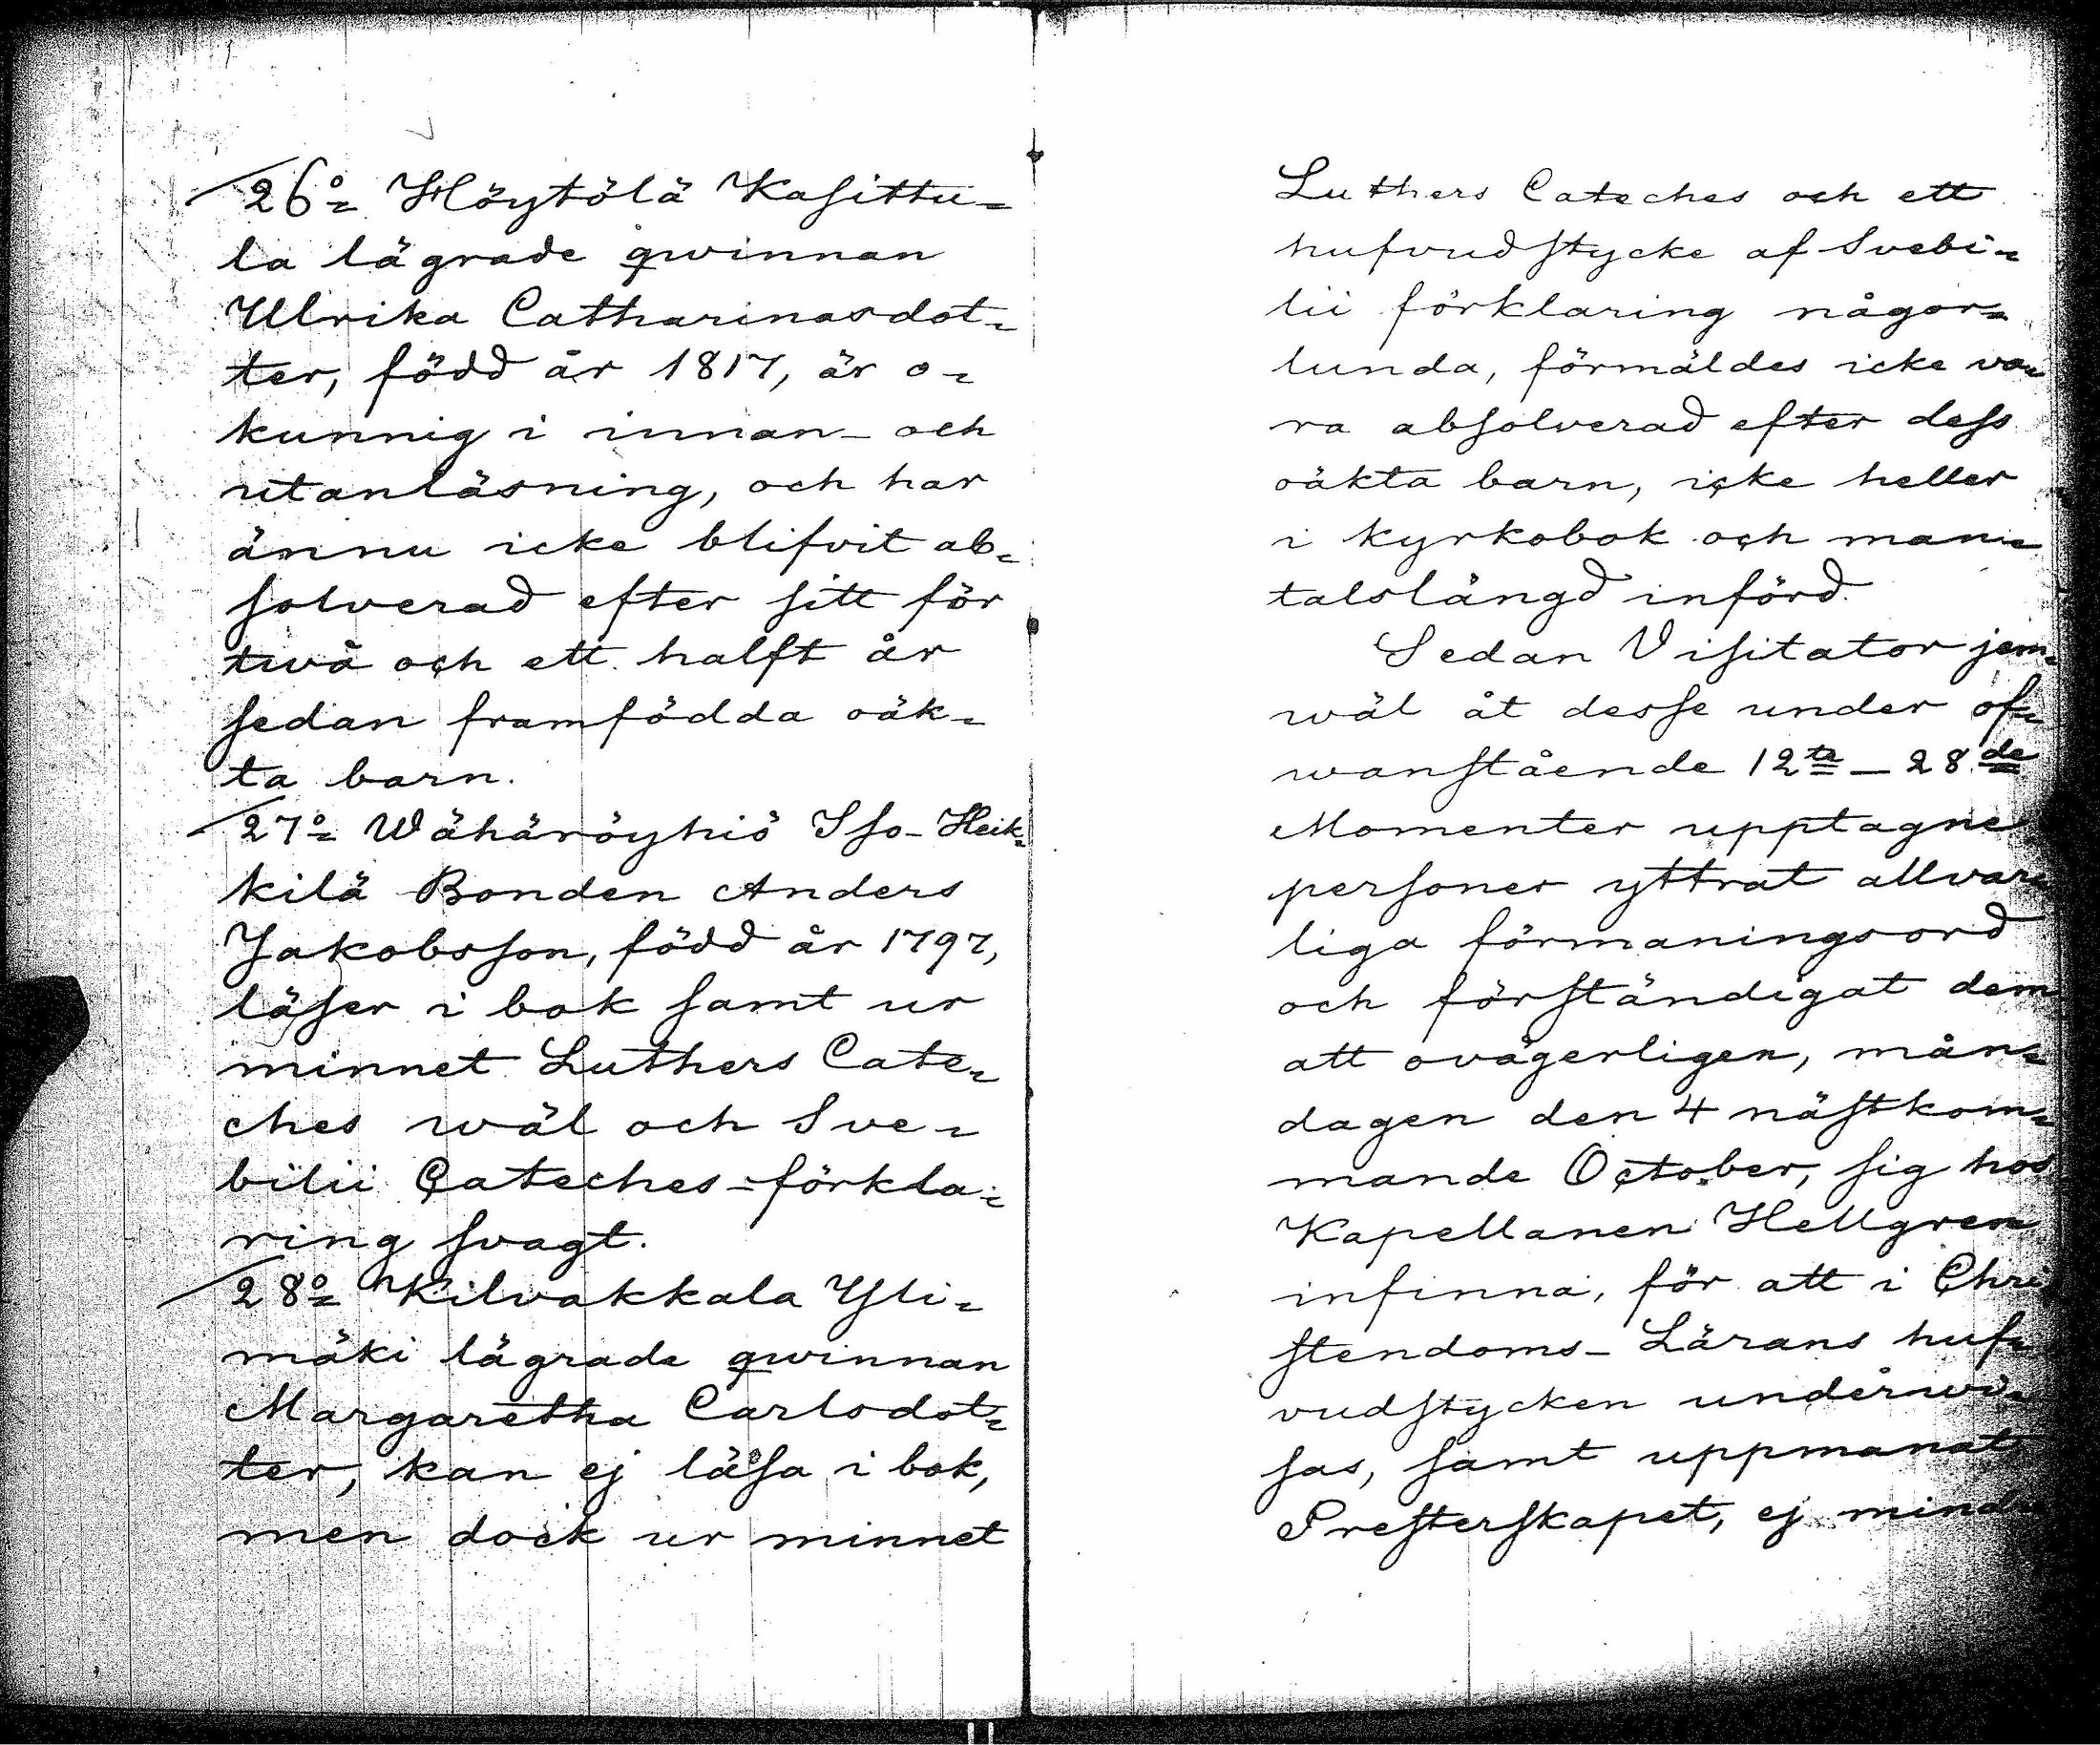 26o= Höytölä Kasittu=
la lägrade qwinnan
Ulrika Catharinasdot=
ter, född år 1817, är o=
kunnig i innan- och
utanläsning, och har
ännu icke blifvit ab=
solverad efter sitt för
twå och ett halft år
sedan framfödda oäk=
ta barn.
27o= Wähäröyhiö Iso-Heik=
kilä Bonden Anders
Jakobsson, född år 1797,
läser i bok samt ur
minnet Luthers Cate=
ches wäl och Sve=
bilii Cateches=förkla=
ring svagt.
28o= Kilvakkala Yli=
mäki lägrade qwinnan
Margaretha Carlsdot=
ter, kan ej läsa i bok,
men dock ur minnet
Luthers Cateches och ett
hufvudstycke af Svebi=
lii förklaring någor=
lunda, förmäldes icke va=
ra absolverad efter dess
oäkta barn, icke heller
i kyrkobok och man=
talslängd införd.
Sedan Visitator jem=
wäl åt desse under of=
wanstående 12te - 28de
Momenter upptagne
personer yttrat allvar=
liga förmaningsord
och förständigat dem
att ovägerligen, mån=
dagen den 4 nästkom=
mande October, sig hos
Kapellanen Hellgren
infinna, för att i Chri
stendoms-Lärans huf=
vudstycken underwi=
sas, samt uppmanat
Presterskapet, ej